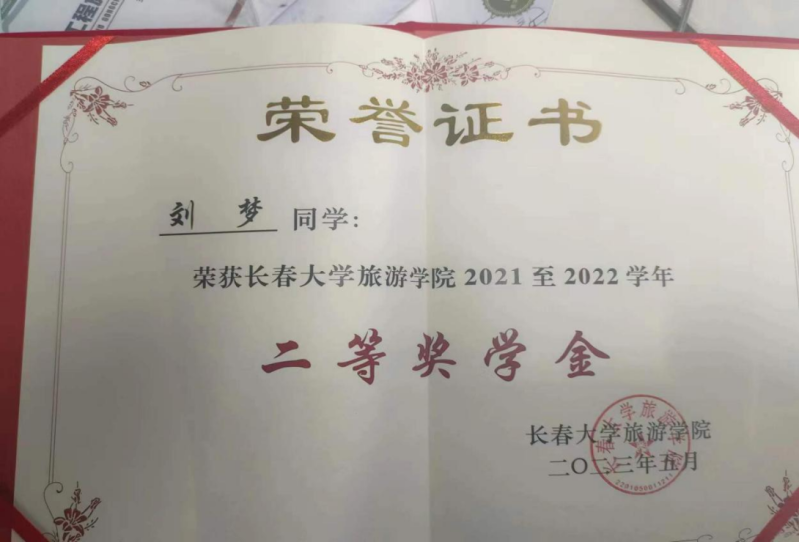 工程
荣誉证书
刘 梦 同学:
荣获长春大学旅游学院 2021 至 2022 学年
二等奖学金
长春大学旅游学院
二〇二三年五月
长春大学旅游学院